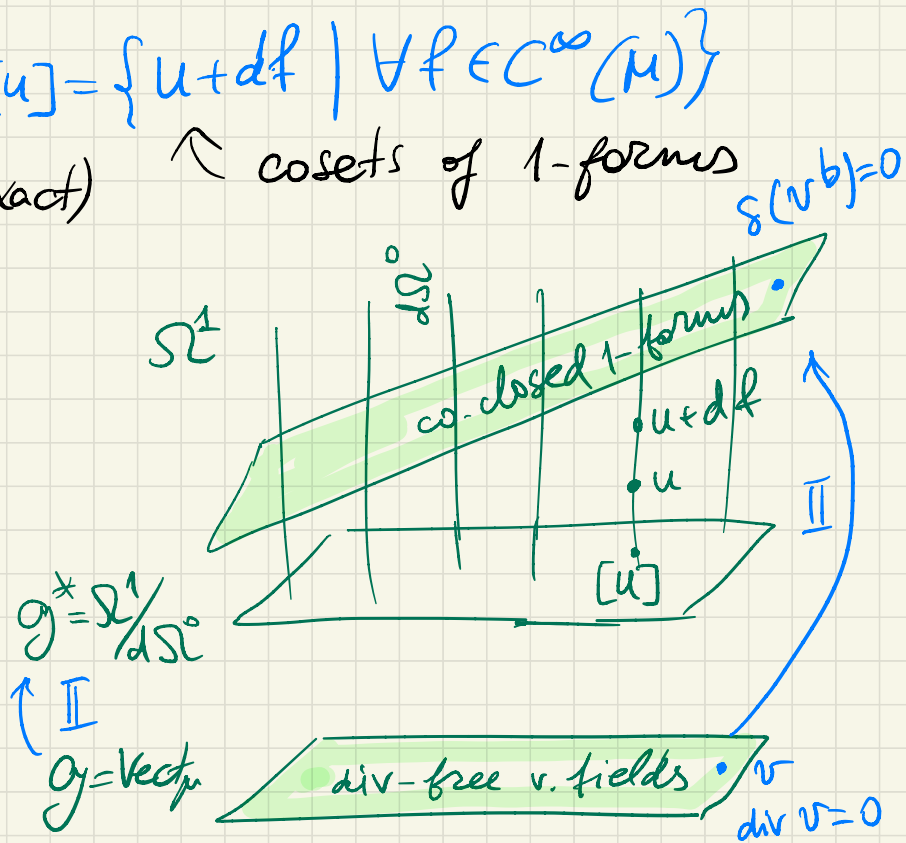 u] = { u+df | ∀f ∈ C^∞(M)}
xact) ↖ cosets of 1-forms
δ(v^b)=0
Ω¹
dΩ⁰
co-closed 1-forms
u+df
u
II
[u]
g* = Ω¹/dΩ⁰
II
g = Vect_μ
div-free v. fields
v
div v = 0